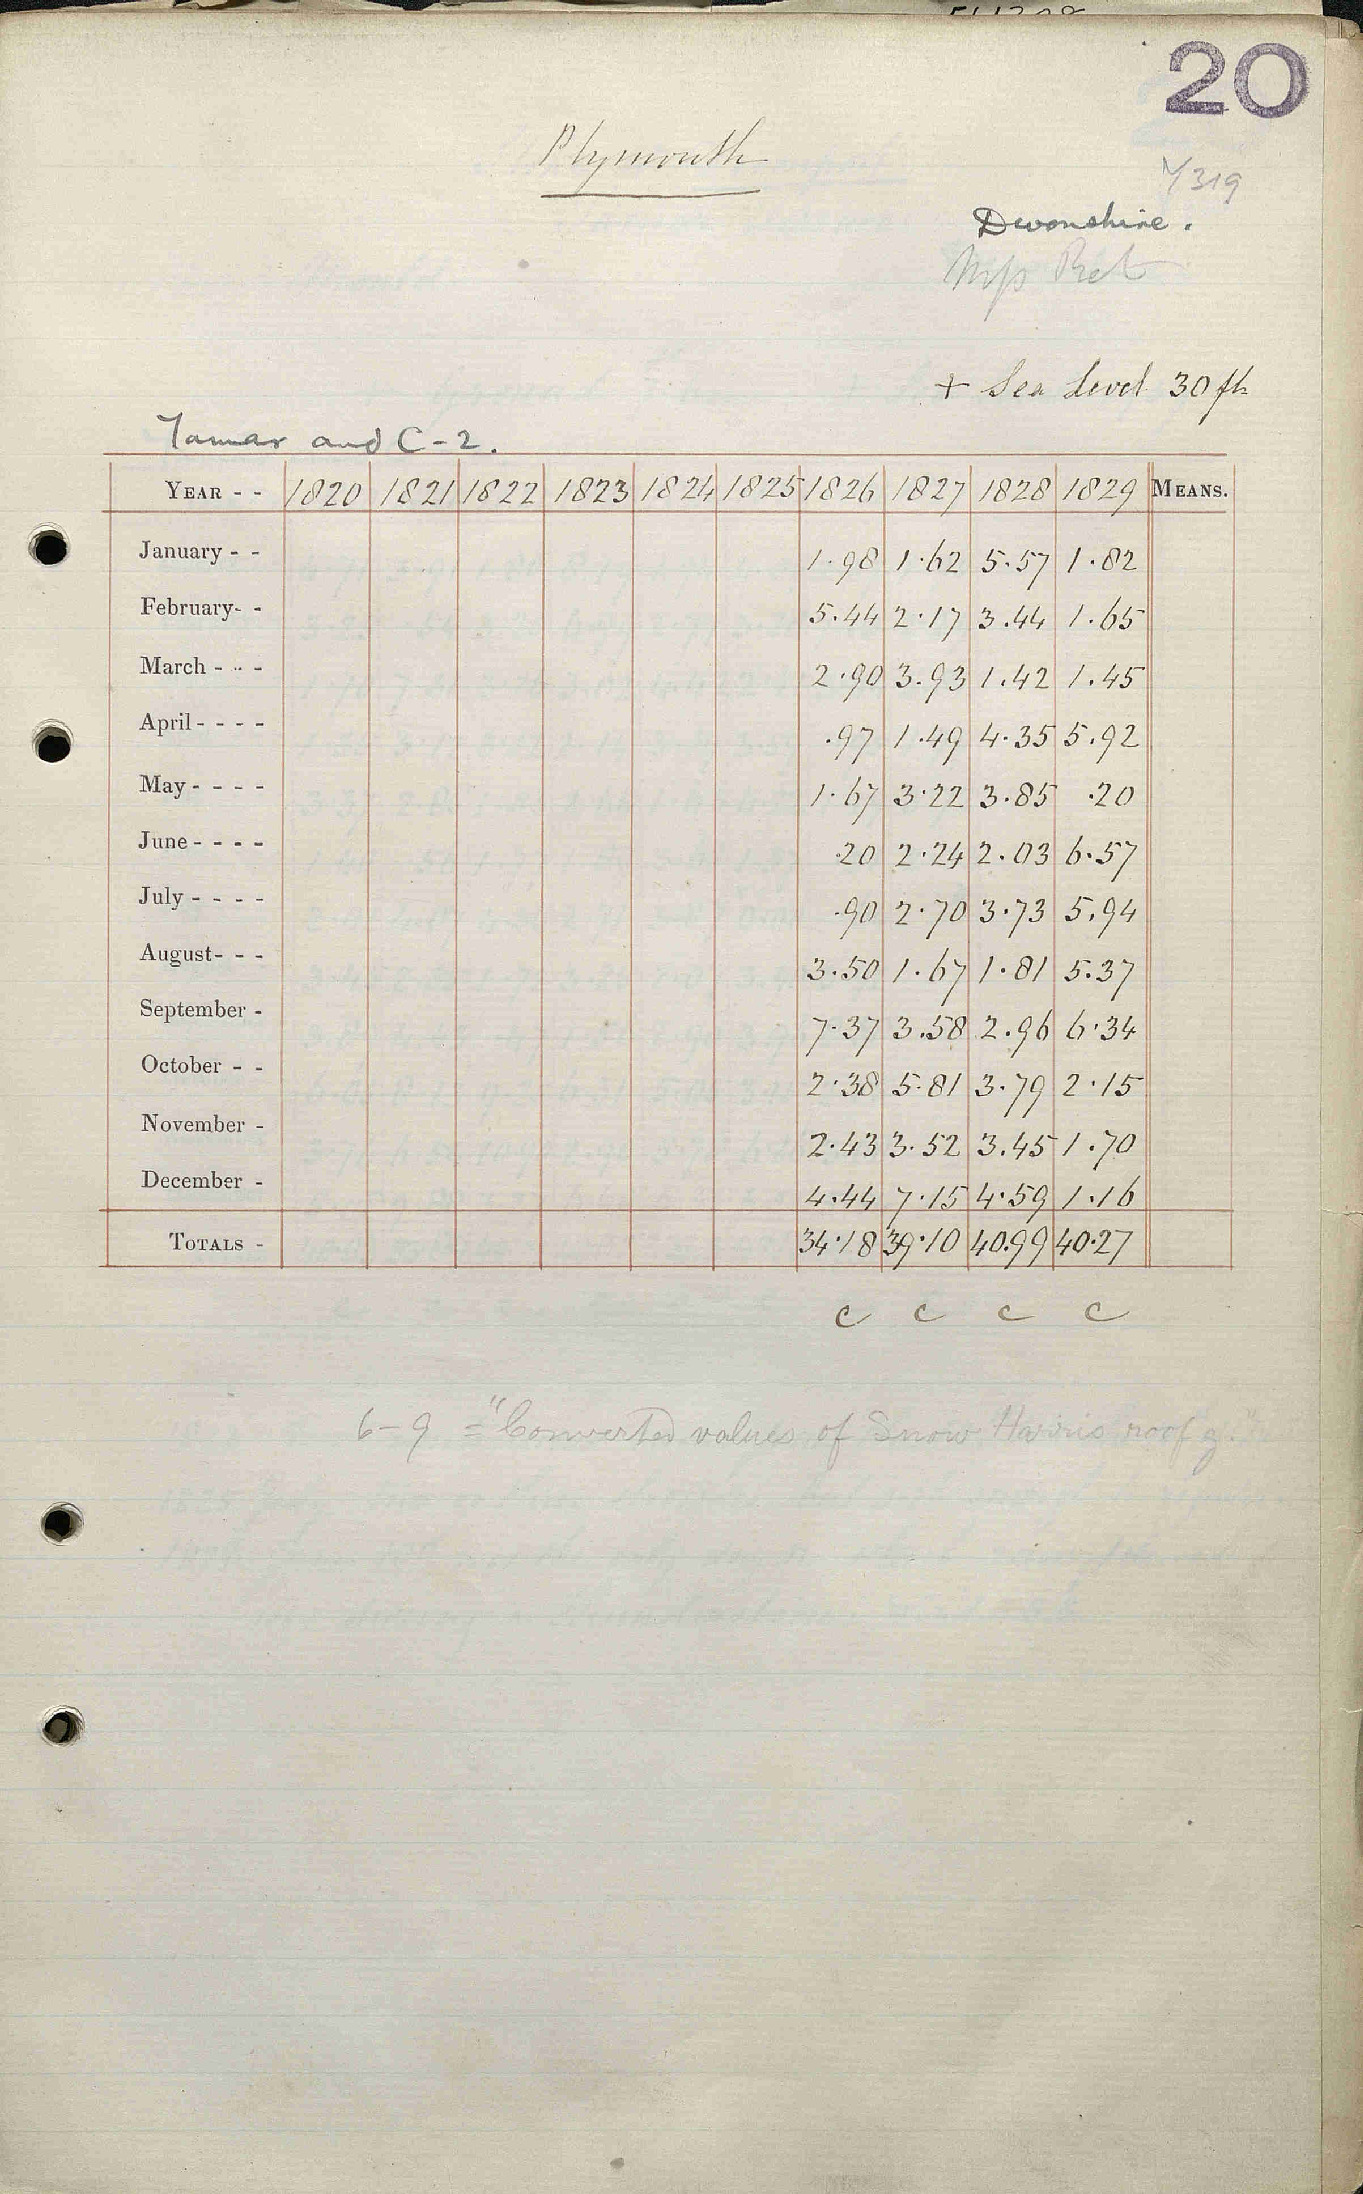 20
Plymouth
7319
Devonshire.
+ Sea Level 30 ft
Tamar and C-2.
YEAR - - 1820 1821 1822 1823 1824 1825 1826 1827 1828 1829 MEANS.
January - - 1.98 1.62 5.57 1.82
February- - 5.44 2.17 3.44 1.65
March - - - 2.90 3.93 1.42 1.45
April - - - - .97 1.49 4.35 5.92
May - - - - 1.67 3.22 3.85 .20
June - - - - .20 2.24 2.03 6.57
July - - - - .90 2.70 3.73 5.94
August- - - 3.50 1.67 1.81 5.37
September - 7.37 3.58 2.96 6.34
October - - 2.38 5.81 3.79 2.15
November - 2.43 3.52 3.45 1.70
December - 4.44 7.15 4.59 1.16
TOTALS - 34.18 39.10 40.99 40.27
c c c c
6-9 = "Converted values of Snow Harris roof g."